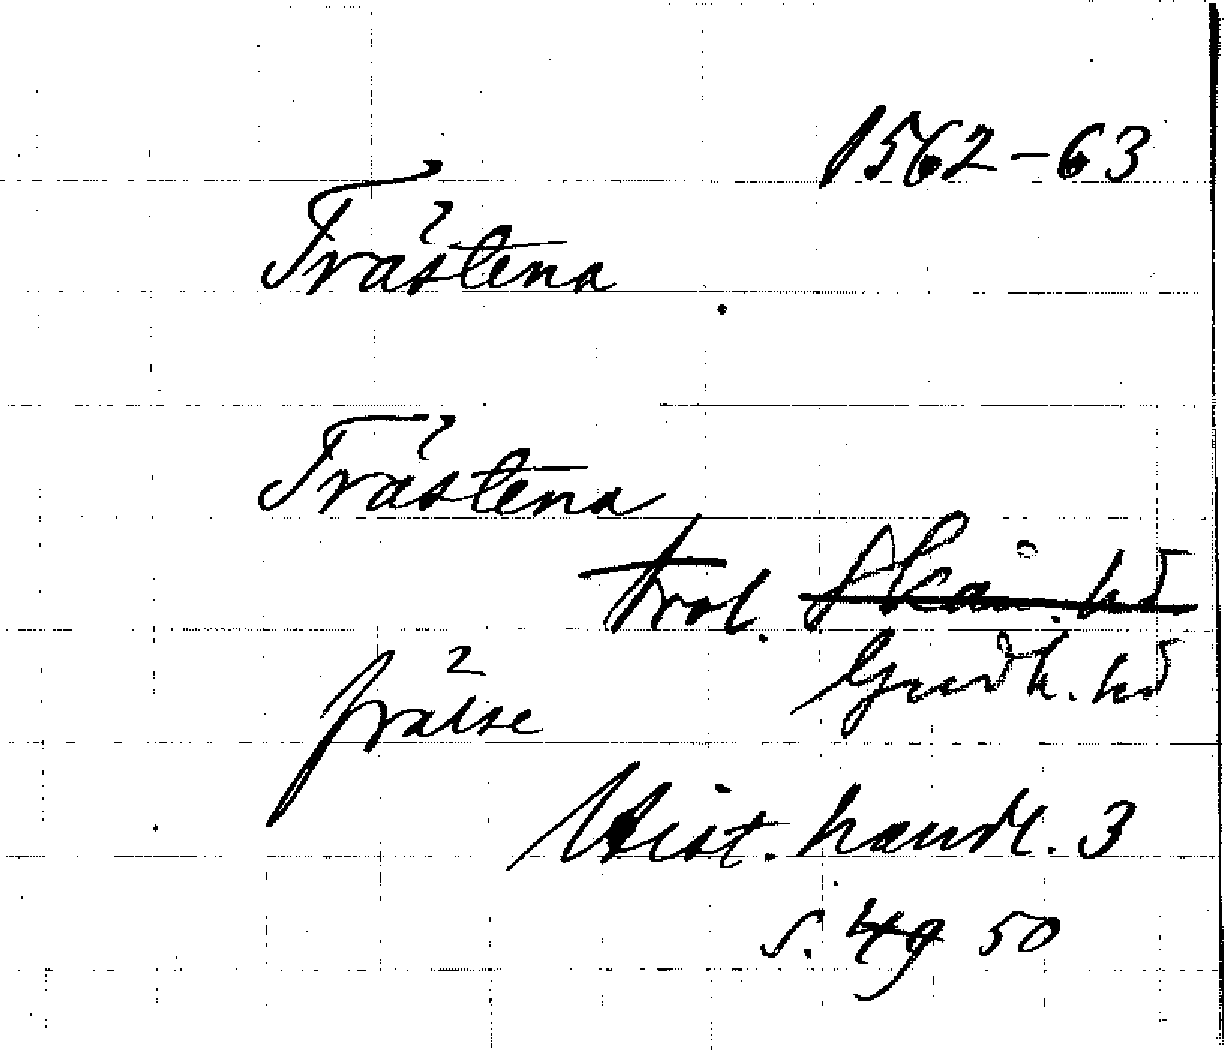 1562-63
Trästena
Trästena
trol. Skån. hd
Gudh. hd
frälse
Hist. handl. 3
s. 49 50